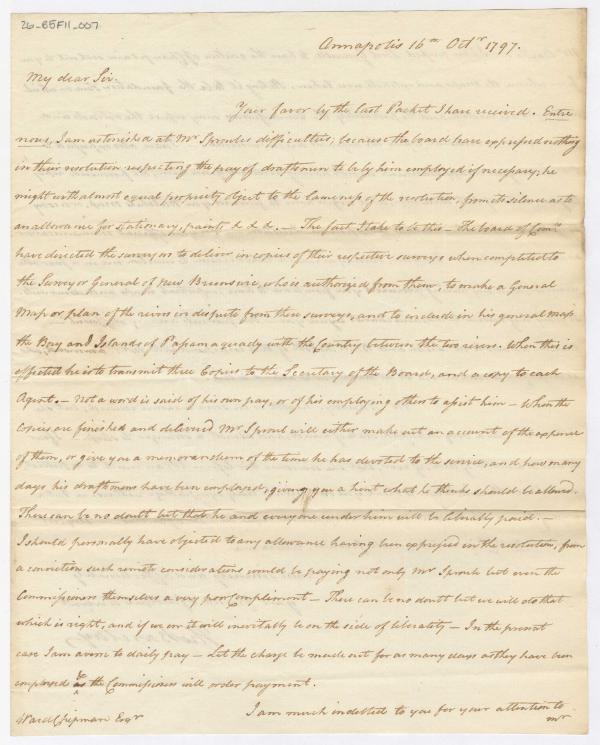 26-85F11-007
Annapolis 16th Octr 1797.
My dear Sir.
Your favor by the last Packet I have received. Entre
nous, I am astonished at Mr Sproule's difficulties, because the board have expressed nothing
in their resolution respecting the pay of draftsmen to be by him employed if necessary; he
might with almost equal propriety object to the lameness of the resolution, from its silence as to
an allowance for stationary, paints, &c &c &c. — The fact I take to be this — The board of Comrs
have directed the surveyors to deliver in copies of their respective surveys when completed to
the Surveyor General of New Brunswic, who is authorized from them, to make a General
Map or plan of the rivers in dispute from these surveys, and to include in his general map
the Bay and Islands of Passamaquady with the Country between the two rivers. When this is
effected he is to transmit three Copies to the Secretary of the Board, and a copy to each
Agent. — Not a word is said of his own pay, or of his employing others to assist him — When the
Copies are finished and delivered Mr Sproul will either make out an account of the expence
of them, or give you a memorandum of the time he has devoted to the service, and how many
days his draftsmen have been employed, giving you a hint what he thinks should be allowed.
There can be no doubt but that he and everyone under him will be liberally paid. —
I should personally have objected to any allowance having been expressed in the resolution, from
a conviction such remote considerations would be paying not only Mr Sproule but even the
Commissioners themselves a very poor Compliment — There can be no doubt but we will do that
which is right, and if we err it will inevitably be on the side of liberality — In the present
case I am averse to daily pay — Let the charge be made out for as many days as they have been
employed & the Commissioners will order payment.
I am much indebted to you for your attention to
Ward Chipman Esqr
Mr